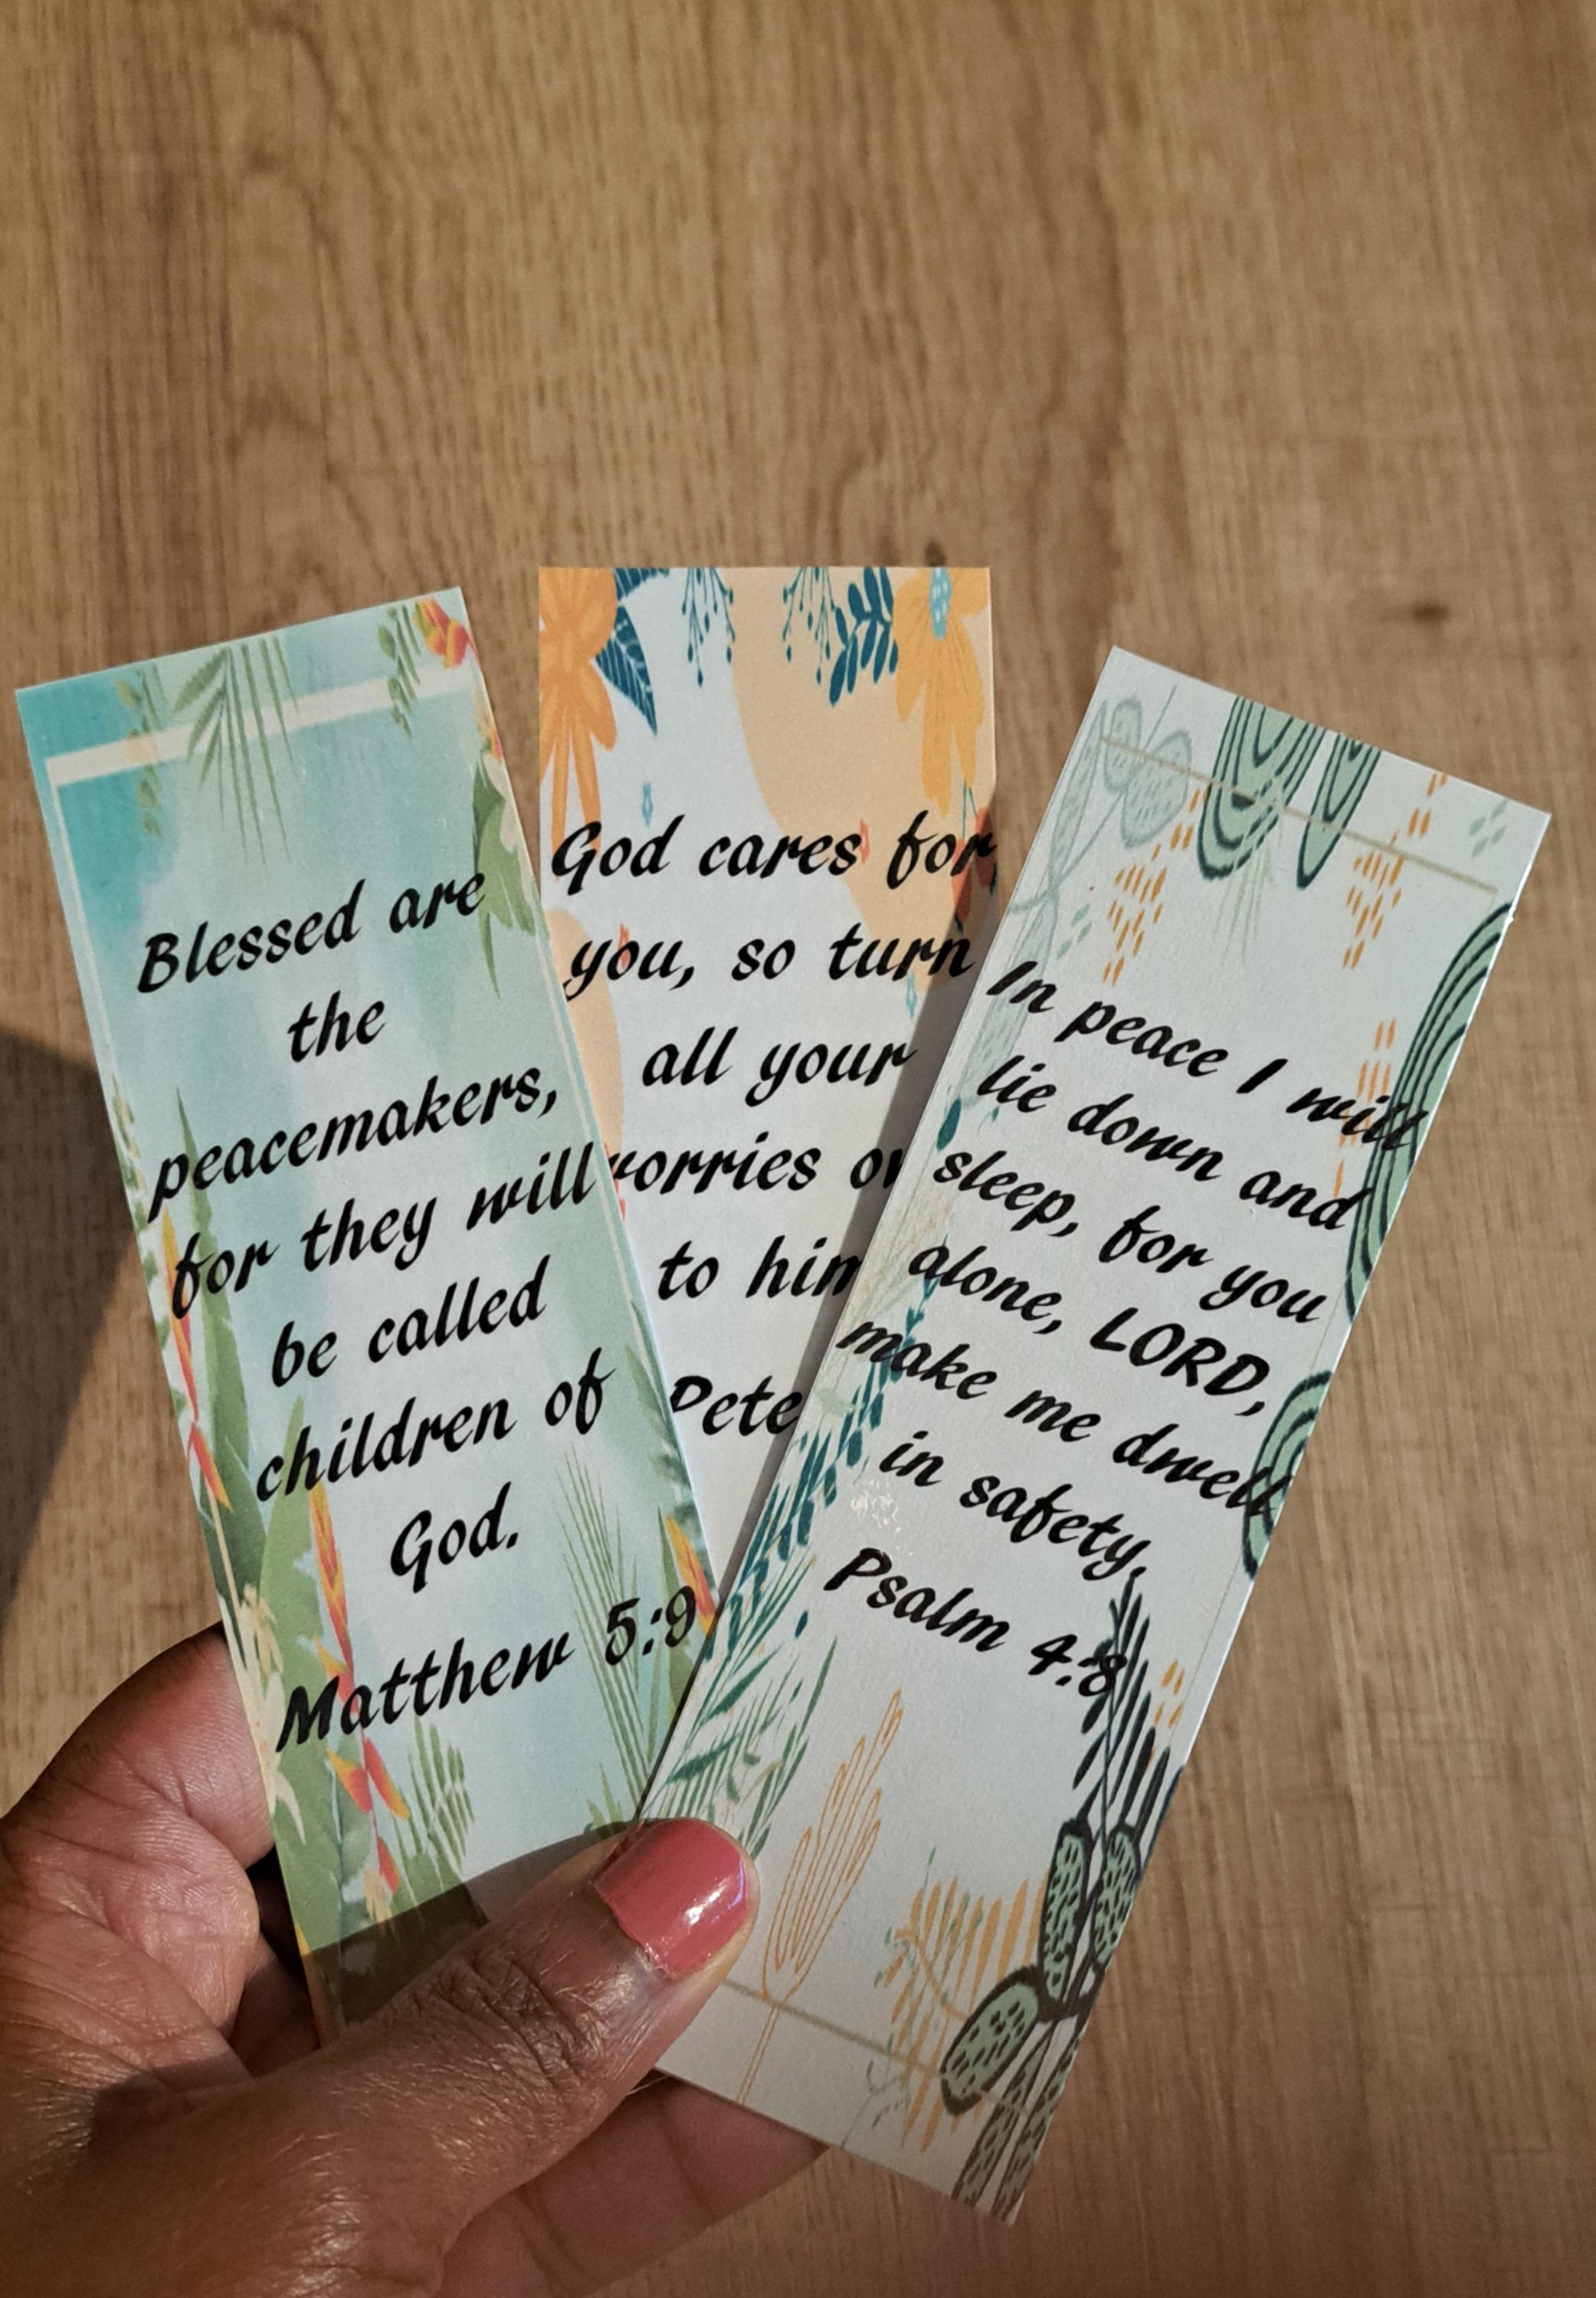 Blessed are
the
peacemakers,
for they will
be called
children of
God.
Matthew 5:9
God cares for
you, so turn
all your
worries
to him
Pete
In peace I will
lie down and
sleep, for you
alone, LORD,
make me dwell
in safety.
Psalm 4:8